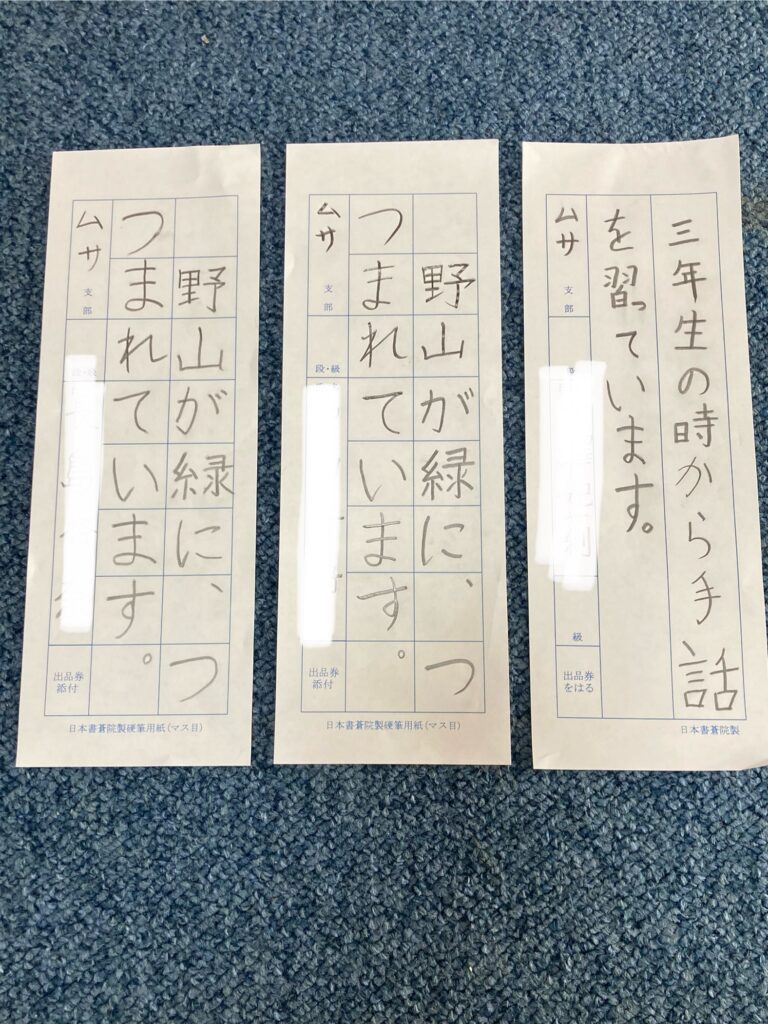 三年生の時から手話
を習っています。
ムサ
支部
級
出品券
をはる
日本書蒼院製
野山が緑に、つ
つまれています。
ムサ
支部
段・級
出品券
添付
日本書蒼院製硬筆用紙(マス目)
野山が緑に、つ
つまれています。
ムサ
支部
段・級
出品券
添付
日本書蒼院製硬筆用紙(マス目)